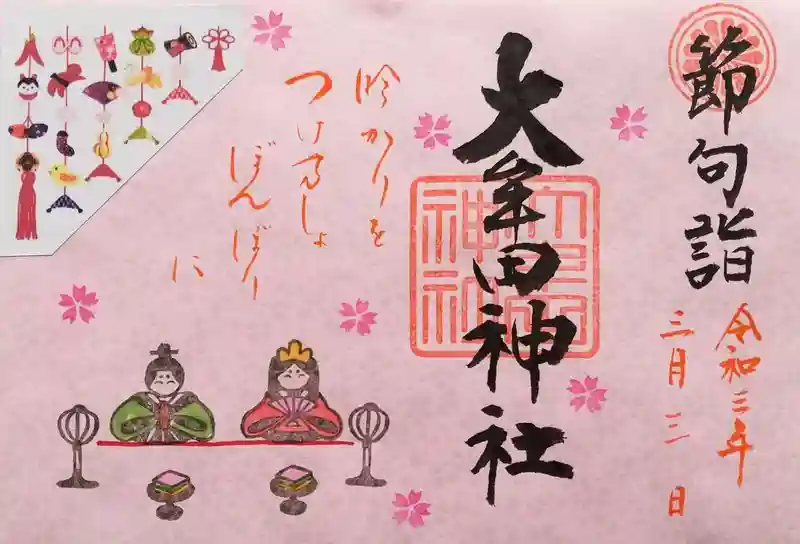 節句詣
令和三年
三月三日
大牟田神社
神社
明かりを
つけましょ
ぼんぼり
に